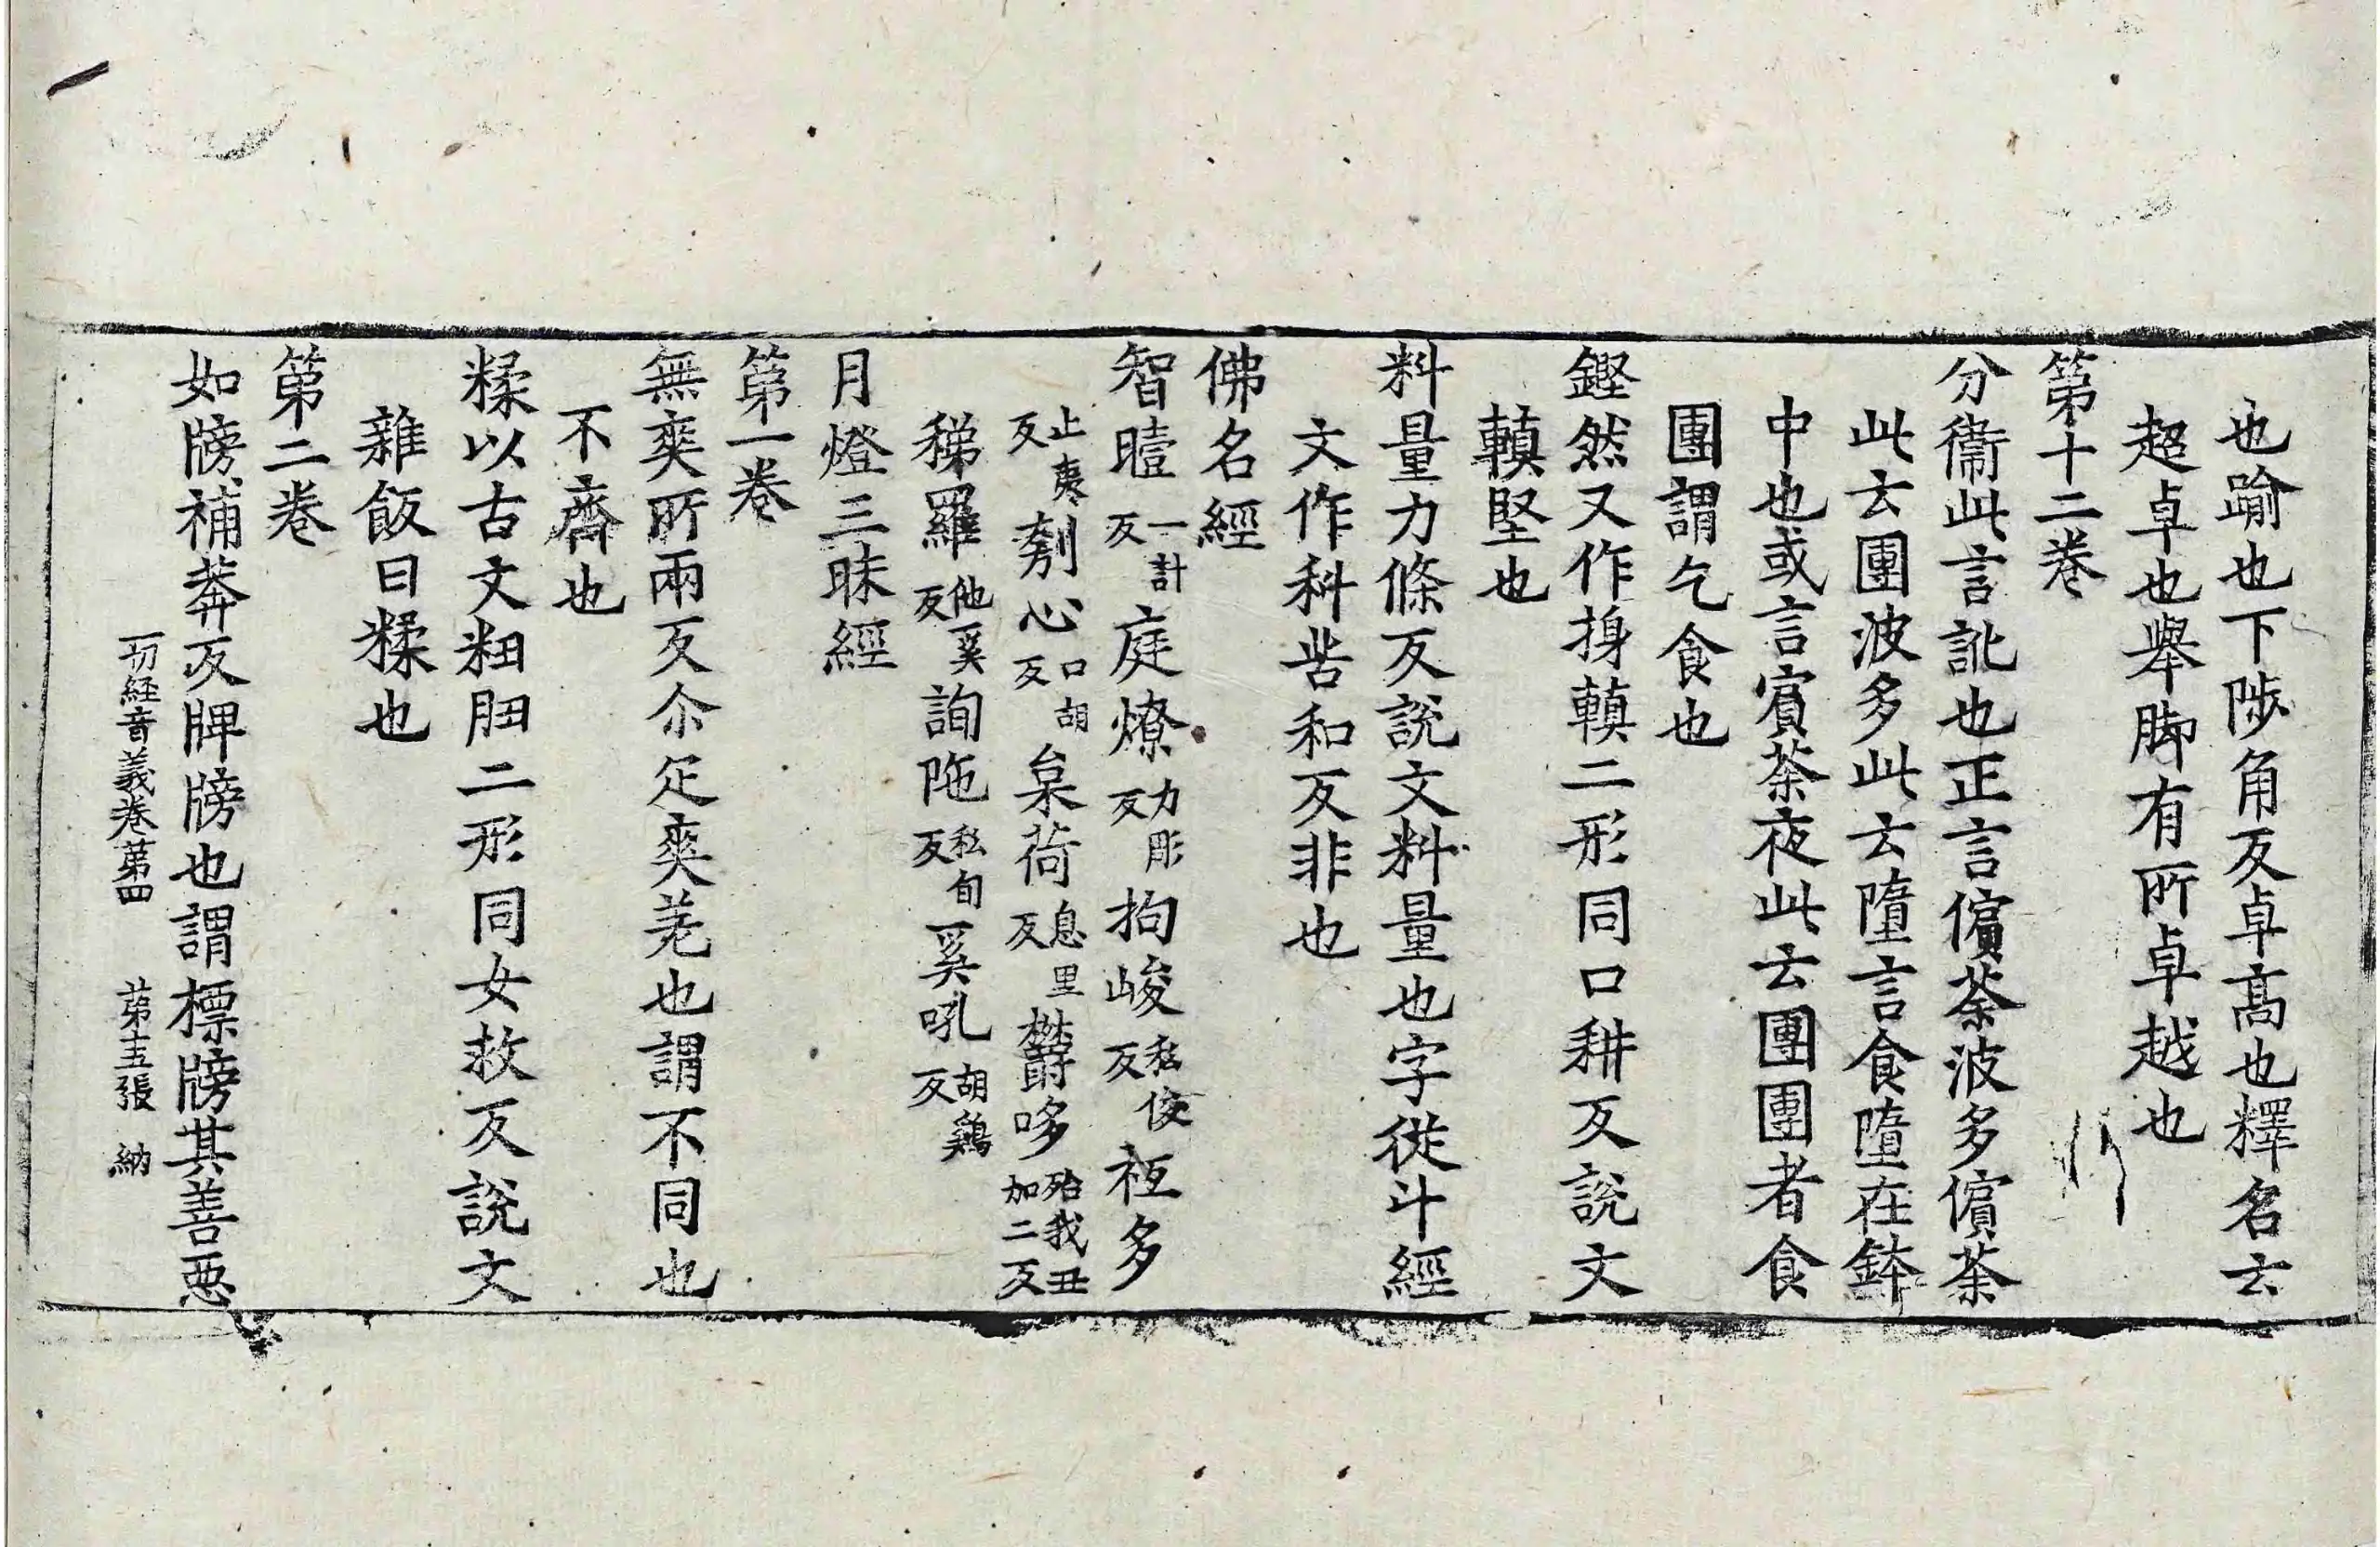 也踰也下陟角反卓高也釋名云
超卓也舉脚有所卓越也
第十二卷
分衞此言訛也正言儐荼波多儐荼
此云團波多此云墮言食墮在鉢
中也或言賓荼夜此云團團者食
團謂乞食也
鏗然又作摼䡰二形同口耕反說文
䡰堅也
料量力條反說文料量也字從斗經
文作科苦和反非也
佛名經
智曀一計反庭燎力彫反拘峻私俊反袛多
止夷反刳心口胡反枲荷息里反欝哆殆我丑加二反
稊羅他奚反詢陁私旬反奚吼胡鷄反
月燈三昧經
第一卷
無爽所兩反尒疋爽差也謂不同也
不齊也
糅以古文粈䏔二形同女救反說文
雜飯曰糅也
第二卷
如牓補莽反牌牓也謂標牓其善惡
一切経音義卷第四 第十五張 納